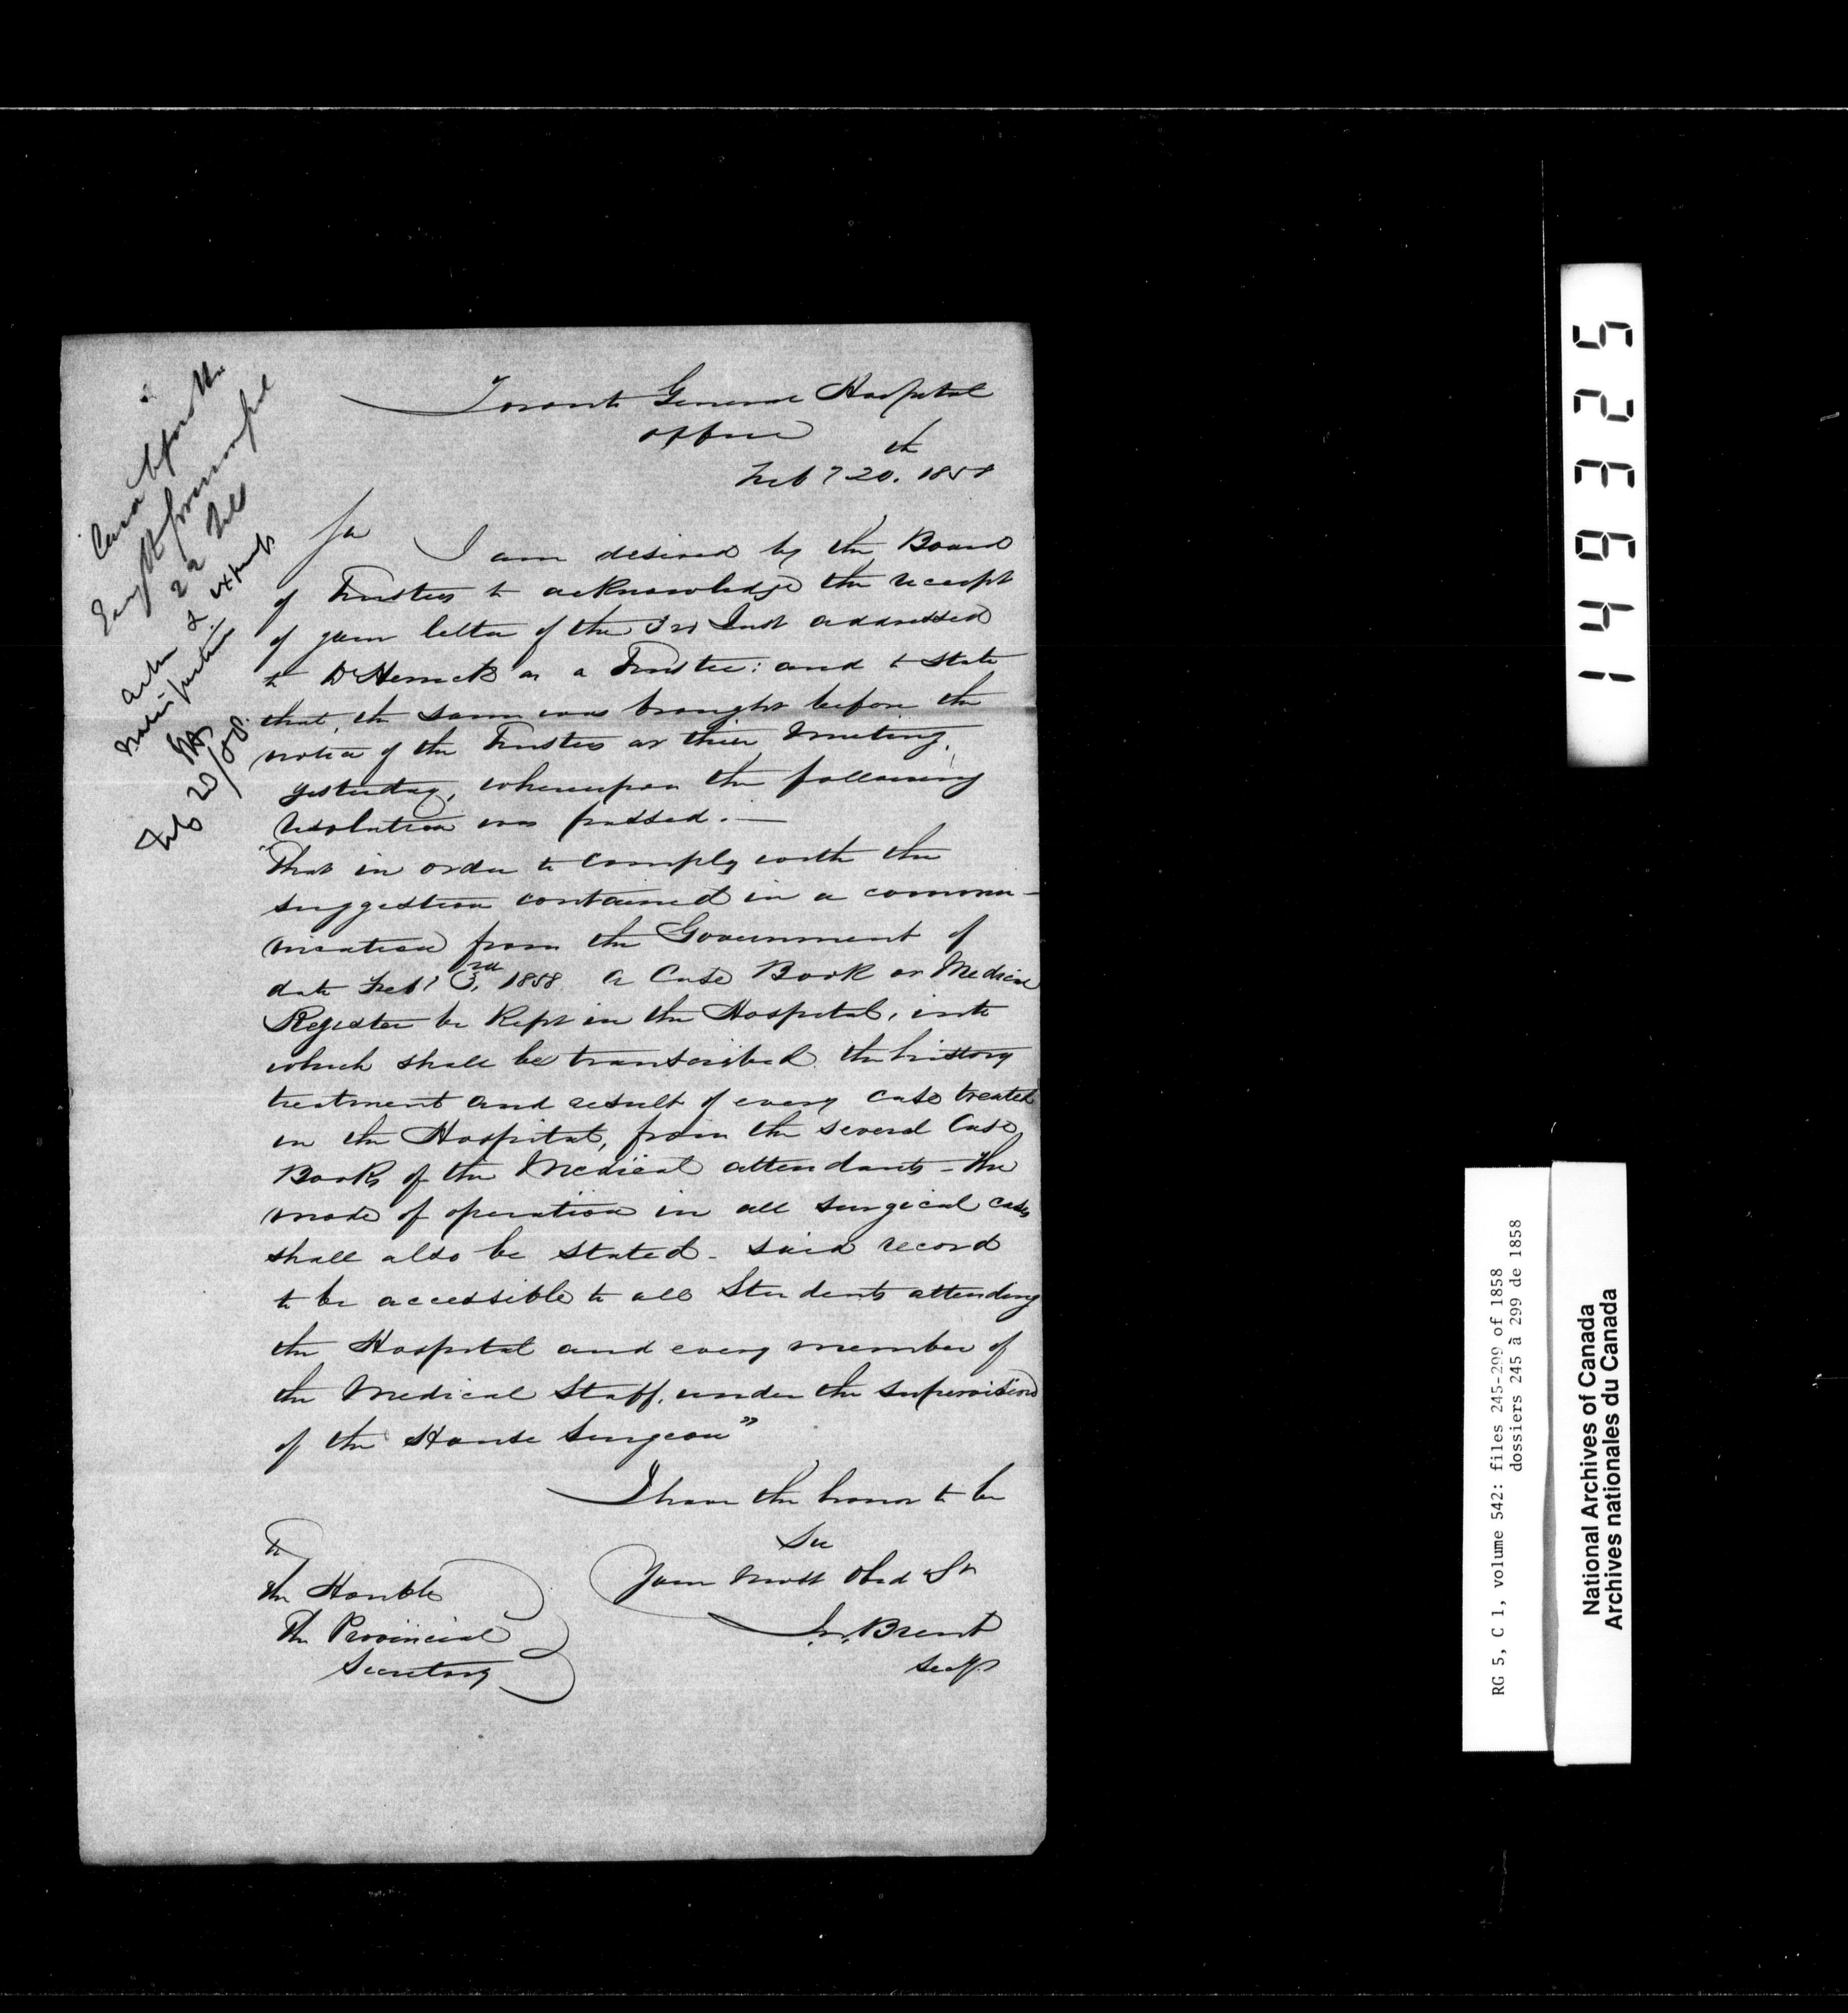 Toronto General Hospital
office
Feby 20th. 1858
Sir
I am desired by the Board
of Trustees to acknowledge the receipt
of your letter of the 3rd Inst addressed
to Dr Herrick as a Trustee: and to state
that the same was brought before the
notice of the Trustees at their meeting,
yesterday, whereupon the following
resolution was passed. —
"That in order to comply with the
suggestion contained in a commu-
nication from the Government of
date Feby 3rd, 1858. a Case Book or Medical
Register be kept in the Hospital, into
which shall be transcribed the history
treatment and result of every case treated
in the Hospital, from the several Case
Books of the Medical attendants - The
mode of operation in all surgical cases
shall also be stated - said record
to be accessible to all Students attending
the Hospital and every member of
the Medical Staff, under the supervision
of the House Surgeon"
I have the honor to be
Sir
Your Most Obed St
Brent
Secy
To
The Honble
The Provincial
Secretary
22 Feb
Feb 20/58.
149325
RG 5, C 1, volume 542: files 245-299 of 1858
dossiers 245 à 299 de 1858
National Archives of Canada
Archives nationales du Canada